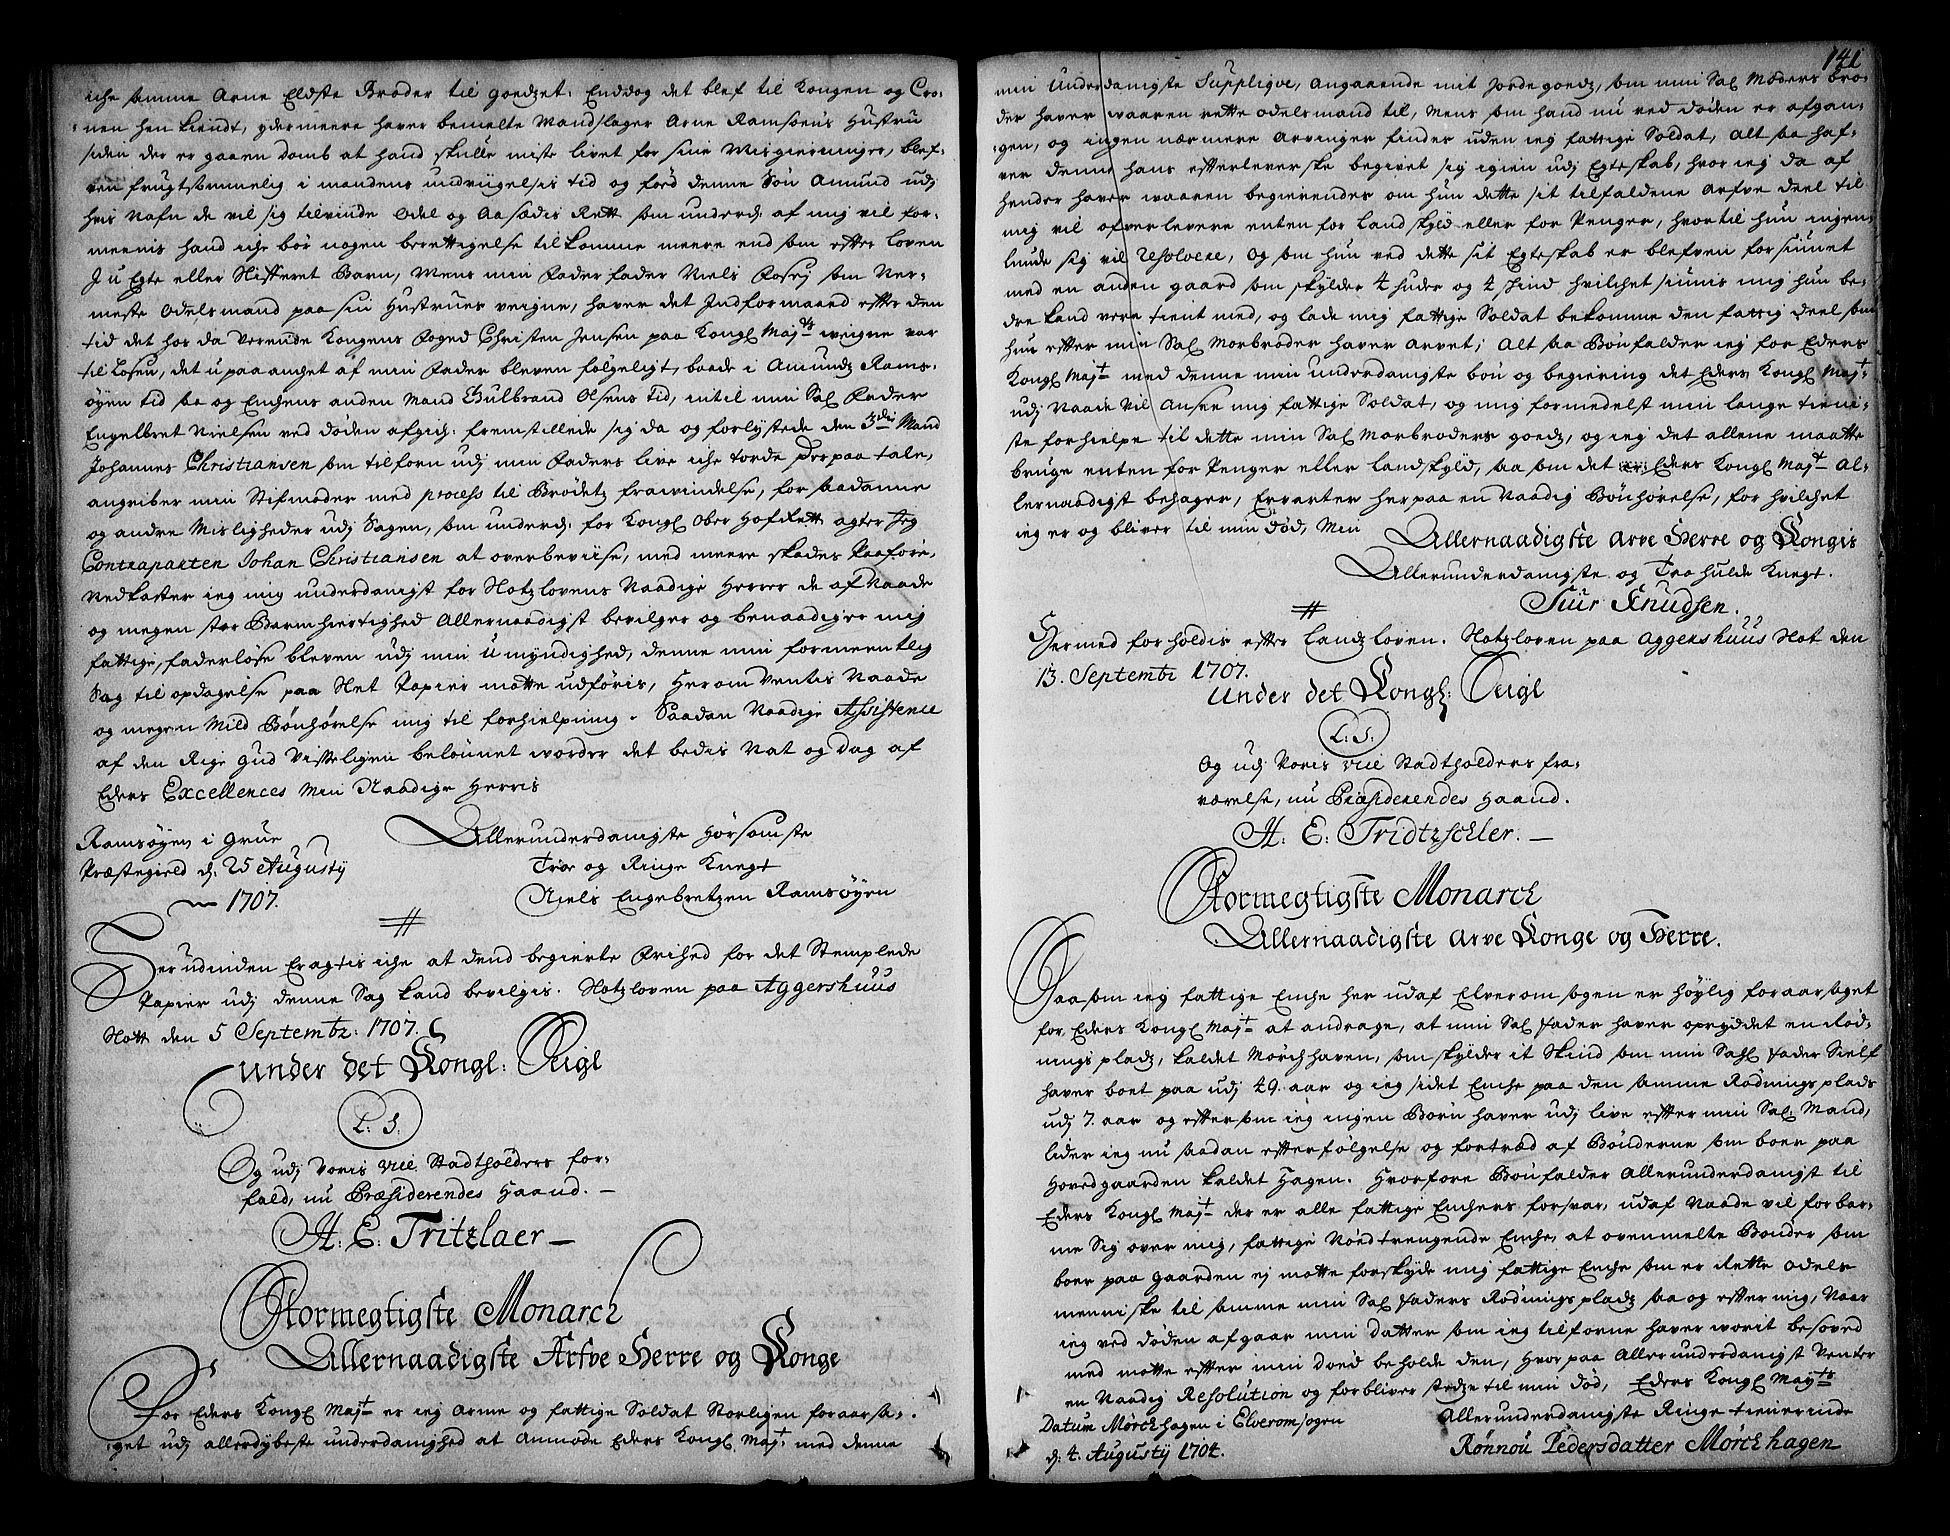 iche samme Arne Eldste Broder til goedzet; Enddog det blef til Kongen og Cro-
nen hen kiendt, ydermeere haver bemelte Mandslager Arne Ramsøens Hustru
siden der er gaaen domb at hand skulle miste livet for sine Misgierninger, blef-
ven frugtsommelig i mandens undviigelsis tid og fød denne Søn Amund udj
hvis Nafn de vil sig tilvinde Odel og Aasædis Rett som underd: af mig vil for-
meenis hand iche bør nogen berettigelse tilkomme meere end som efter loven
J u Egte eller Slifferet Barn, Mens min Fader fader Niels Fosej som Ner-
meste Odelsmand paa sin Hustrues veigne, haver det Indformaaend efter den
tid det hos da verende Kongens Foged Christen Jensen paa Kongl Majts weigne var
til Løsen, det upaaanchet af min Fader bleven følgeligt, baade i Amundz Rams-
øyen tid saa og Enchens anden Mand Gulbrand Olsens tid, intil min Sal Fader
Engelbret Nielsen ved døden afgich: fremstillede sig da og forlystede den 3die Mand
Johannes Christiansen som tilforn udj min Faders live iche torde derpaa tale,
angriber min Stifmoder med process til Brødetz frawindelse, for saadanne
og andre Misligheder udj Sagen, som underd: for Kongl Ober Hof Rett agter Jeg
Contraparten Johan Christiansen at overbeviise, med meere skades Paaføre,
Nedkaster ieg mig underdanigst for Slotzlovens Naadige Herrer de af Naade
og megen stor Barmhiertighed Allernaadigst bevilger og benaadiger mig
fattige, faderløse bleven udj min Umyndighed, denne min formeentlig
Sag til opdagelse paa Slet Papier motte udføris, Herom Ventis Naade
og megen Mild Bønhørelse mig til forhielpning. Saadan Naadige Assistence
af den Rige Gud Visseligen belønnet worder det bedis Nat og dag af
Eders Excellences Min Naadige Herris
Ramsøyen i Grue
Præstegield d: 25 Augustij
1707.
Allerunderdanigste Hørsomste
Troe og Ringe Knegt
Niels Engebretzen Ramsøyen
Herudinden Eragtis iche at dend begierte Frihed for det Stemplede
Papier udj denne Sag kand bevilgis. Slotzloven paa Aggershuus
Slott den 5 Septembr: 1707.
Under det Kongl: Seigl
L: S:
Og udj Voris vice Stadtholders for-
fald, nu Præsiderendes Haand.
H: E: Tritzlaer
Stormegtigste Monarch
Allernaadigste Arfve Herre og Konge
For Eders Kongl Majt er ieg Arme og fattige Soldat Storligen foraarsa-
get udj allerdybeste underdanighed at Anmode Eders Kongl Majt med denne
141
min Underdanigste Supplique, angaaende mit Jordegoedz, som min Sal Moders bro-
der haver waaren rette odelsmand til, Mens som hand nu ved døden er afgan-
gen, og ingen nærmere Arvinger finder uden ieg fattige Soldat, Alt saa haf-
ver denne hans efterleverske begivet sig igien udj Egteskab, hvor ieg da af
hender haver waaren begierendes om hun dette sit tilfaldene Arfve deel til
mig vil ofverlevere enten for Landskyld eller for Penger, hvortil hun ingen-
lunde sig vil resolvere, og som hun ved dette sit Egteskab er blefven forsiunet
med en anden gaard som skylder 4 huder og 4 skind hvilchet siunis mig hun be-
dre kand vere tient med, og lade mig fattige Soldat bekomme den fattig deel som
hun efter min Sal Morbroder haver Arvet; Alt saa Bønfalder ieg for Eders
Kongl Majt med denne min underdanigste bøn og begiering det Eders Kongl Majt
udj Naade vil Ansee mig fattige Soldat, og mig formedelst min lange tieni-
ste forhielpe til dette min Sal Morbroders goedz, og ieg det allene maatte
bruge enten for Penger eller landskyld, saa som det Eders Kongl Majt Al-
lernaadigst behager, Ervarter herpaa en Naadig Bønhørelse, for hvilchet
ieg er og bliver til min Død, Min
Allernaadigste Arve Herre og Kongis
Allerunderdanigste og Tro hulde Knegt.
Siur Knudsen.
Hermed forholdis efter Landzloven. Slotzloven paa Aggershuus Slot den
13. Septembr 1707.
Under det Kongl: Seigl
L: S:
Og udj Voris vice Stadtholders fra-
værelse, nu Præsiderendes Haand.
H: E: Tridtzschler.
Stormegtigste Monarch
Allernaadigste Arve Konge og Herre.
Saasom ieg fattige Enche her udaf Elveromsogen er høylig foraarsaget
for Eders Kongl Majt at andrage, at min Sal Fader haver opryddet en Rød-
nings pladz, kaldet Mørchhaven, som skylder it Skind som min Sahl Fader Sielf
haver boet paa udj 49. aar og ieg sidet Enche paa den samme Rødnings plads
udj 7. aar og eftersom ieg ingen Børn haver udj live efter min Sal Mand,
lider ieg nu saadan efterfølgelse og fortræd af Bønderne som boer paa
Hovedgaarden kaldet Hagen. Hvorfore Bønfalder Allerunderdanigst til
Eders Kongl Majt der er alle fattige Enchers forsvar, udaf Naade vil forbar-
me Sig over mig, fattige Nøedtrengende Enche, at ovenmelte Bønder som
boer paa gaarden ej motte forskyde mig fattige Enche som er Rette Odels
menniske til samme min Sal Faders Rødnings pladz saa og efter mig, Naar
ieg ved døden afgaar min datter som ieg tilforne haver worit besoved
med motte efter min doed beholde den, Hvor paa Allerunderdanigst Venter
en Naadig Resolution og forbliver stedze til min Død, Eders Kongl Mayts
Datum Mørchhagen i Elveromsogen
d: 4. Augustij 1704.
Allerunderdanigste Ringe tienerinde
Rønnou Pedersdatter Mørchhagen